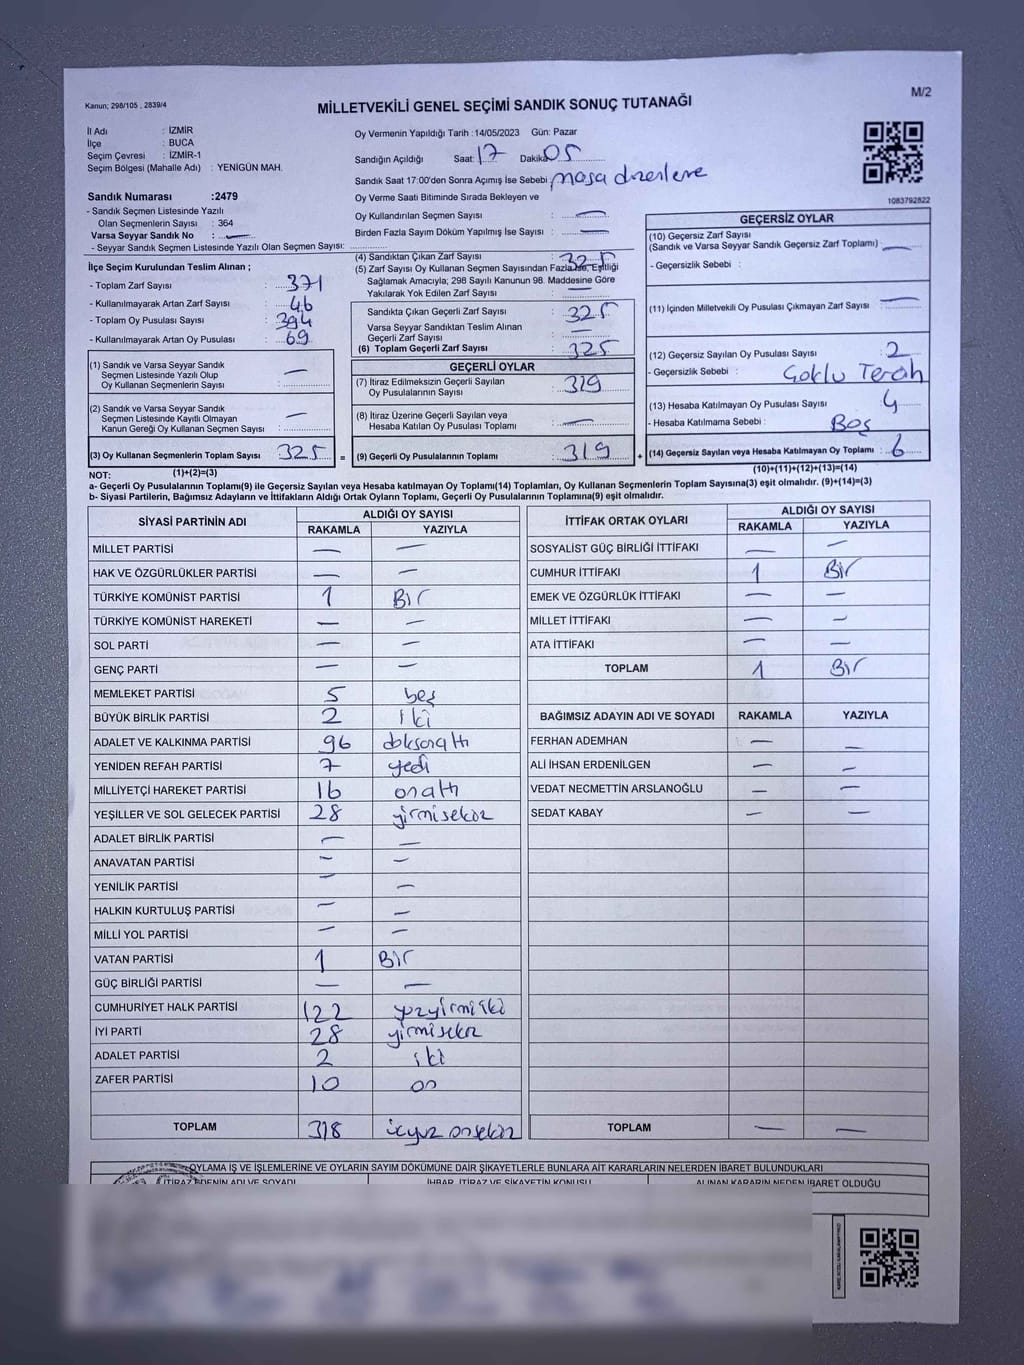 Kanun; 298/105 , 2839/4
MİLLETVEKİLİ GENEL SEÇİMİ SANDIK SONUÇ TUTANAĞI
M/2
İl Adı : İZMİR
İlçe : BUCA
Seçim Çevresi : İZMİR-1
Seçim Bölgesi (Mahalle Adı) : YENİGÜN MAH.
Oy Vermenin Yapıldığı Tarih :14/05/2023 Gün: Pazar
Sandığın Açıldığı Saat: 17 Dakika 05
Sandık Saat 17:00'den Sonra Açımış İse Sebebi masa düzenleme
Oy Verme Saati Bitiminde Sırada Bekleyen ve
Oy Kullandırılan Seçmen Sayısı : —
Birden Fazla Sayım Döküm Yapılmış İse Sayısı : —
1083792822
Sandık Numarası :2479
- Sandık Seçmen Listesinde Yazılı
Olan Seçmenlerin Sayısı : 364
Varsa Seyyar Sandık No : —
- Seyyar Sandık Seçmen Listesinde Yazılı Olan Seçmen Sayısı:
İlçe Seçim Kurulundan Teslim Alınan ;
- Toplam Zarf Sayısı : 371
- Kullanılmayarak Artan Zarf Sayısı : 46
- Toplam Oy Pusulası Sayısı : 394
- Kullanılmayarak Artan Oy Pusulası : 69
(1) Sandık ve Varsa Seyyar Sandık
Seçmen Listesinde Yazılı Olup
Oy Kullanan Seçmenlerin Sayısı : —
(2) Sandık ve Varsa Seyyar Sandık
Seçmen Listesinde Kayıtlı Olmayan
Kanun Gereği Oy Kullanan Seçmen Sayısı : —
(3) Oy Kullanan Seçmenlerin Toplam Sayısı 325
(4) Sandıktan Çıkan Zarf Sayısı : 325
(5) Zarf Sayısı Oy Kullanan Seçmen Sayısından Fazla İse, Eşitliği
Sağlamak Amacıyla; 298 Sayılı Kanunun 98. Maddesine Göre
Yakılarak Yok Edilen Zarf Sayısı : —
Sandıkta Çıkan Geçerli Zarf Sayısı : 325
Varsa Seyyar Sandıktan Teslim Alınan
Geçerli Zarf Sayısı : —
(6) Toplam Geçerli Zarf Sayısı : 325
GEÇERLİ OYLAR
(7) İtiraz Edilmeksizin Geçerli Sayılan
Oy Pusulalarının Sayısı : 319
(8) İtiraz Üzerine Geçerli Sayılan veya
Hesaba Katılan Oy Pusulası Toplamı : —
= (9) Geçerli Oy Pusulalarının Toplamı : 319
GEÇERSİZ OYLAR
(10) Geçersiz Zarf Sayısı
(Sandık ve Varsa Seyyar Sandık Geçersiz Zarf Toplamı) : —
- Geçersizlik Sebebi :
(11) İçinden Milletvekili Oy Pusulası Çıkmayan Zarf Sayısı : —
(12) Geçersiz Sayılan Oy Pusulası Sayısı : 2
- Geçersizlik Sebebi : Çoklu Tercih
(13) Hesaba Katılmayan Oy Pusulası Sayısı : 4
- Hesaba Katılmama Sebebi : Boş
+ (14) Geçersiz Sayılan veya Hesaba Katılmayan Oy Toplamı : 6
NOT: (1)+(2)=(3)
(10)+(11)+(12)+(13)=(14)
a- Geçerli Oy Pusulalarının Toplamı(9) ile Geçersiz Sayılan veya Hesaba katılmayan Oy Toplamı(14) Toplamları, Oy Kullanan Seçmenlerin Toplam Sayısına(3) eşit olmalıdır. (9)+(14)=(3)
b- Siyasi Partilerin, Bağımsız Adayların ve İttifakların Aldığı Ortak Oyların Toplamı, Geçerli Oy Pusulalarının Toplamına(9) eşit olmalıdır.
SİYASİ PARTİNİN ADI ALDIĞI OY SAYISI
RAKAMLA YAZIYLA
MİLLET PARTİSİ — —
HAK VE ÖZGÜRLÜKLER PARTİSİ — —
TÜRKİYE KOMÜNİST PARTİSİ 1 Bir
TÜRKİYE KOMÜNİST HAREKETİ — —
SOL PARTİ — —
GENÇ PARTİ — —
MEMLEKET PARTİSİ 5 beş
BÜYÜK BİRLİK PARTİSİ 2 iki
ADALET VE KALKINMA PARTİSİ 96 doksanaltı
YENİDEN REFAH PARTİSİ 7 yedi
MİLLİYETÇİ HAREKET PARTİSİ 16 onaltı
YEŞİLLER VE SOL GELECEK PARTİSİ 28 yirmisekiz
ADALET BİRLİK PARTİSİ — —
ANAVATAN PARTİSİ — —
YENİLİK PARTİSİ — —
HALKIN KURTULUŞ PARTİSİ — —
MİLLİ YOL PARTİSİ — —
VATAN PARTİSİ 1 Bir
GÜÇ BİRLİĞİ PARTİSİ — —
CUMHURİYET HALK PARTİSİ 122 yüzyirmiiki
İYİ PARTİ 28 yirmisekiz
ADALET PARTİSİ 2 iki
ZAFER PARTİSİ 10 on
TOPLAM 318 üçyüz onsekiz
İTTİFAK ORTAK OYLARI ALDIĞI OY SAYISI
RAKAMLA YAZIYLA
SOSYALİST GÜÇ BİRLİĞİ İTTİFAKI — —
CUMHUR İTTİFAKI 1 Bir
EMEK VE ÖZGÜRLÜK İTTİFAKI — —
MİLLET İTTİFAKI — —
ATA İTTİFAKI — —
TOPLAM 1 Bir
BAĞIMSIZ ADAYIN ADI VE SOYADI RAKAMLA YAZIYLA
FERHAN ADEMHAN — —
ALİ İHSAN ERDENİLGEN — —
VEDAT NECMETTİN ARSLANOĞLU — —
SEDAT KABAY — —
TOPLAM — —
OYLAMA İŞ VE İŞLEMLERİNE VE OYLARIN SAYIM DÖKÜMÜNE DAİR ŞİKAYETLERLE BUNLARA AİT KARARLARIN NELERDEN İBARET BULUNDUKLARI
İTİRAZ EDENİN ADI VE SOYADI İHBAR, İTİRAZ VE ŞİKAYETİN KONUSU ALINAN KARARIN NEDEN İBARET OLDUĞU